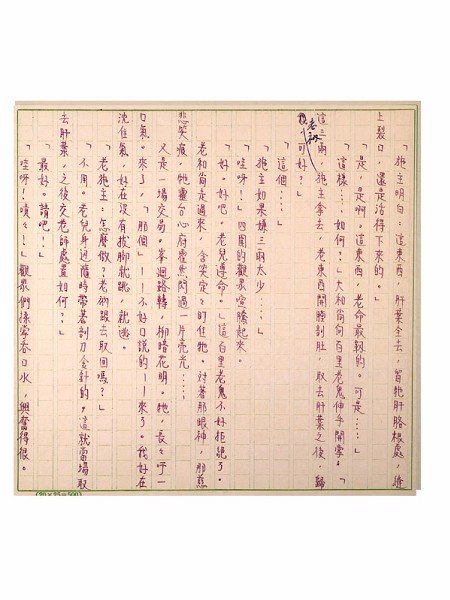 「施主明白:這東西,肝葉全去,留牠肝胳根處,縫
上裂口,還是活得下來的。」
「是,是啊。這東西,老命最靭的。可是……」
「這樣……如何?」大和尚向百里老鬼伸手開掌。「
這三兩,施主拿去,老東西開膛剖肚,取去肝葉之後,歸
老衲
可好?」
「這個……」
「施主如果嫌三兩太少……」
「哇呀!」四圍的觀眾電騰起來。
「好。好吧,老兒遵命。」這百里老鬼不好拒絕了。
老和尚走過來,含笑定定盯住牠。對著那眼神,那慈
悲笑痕,牠靈台心府霍然閃過一片亮光……
又是一場交易。峯迴路轉,柳暗花明。牠,長長吁一
口氣。來了,「那個」——不好口說的——來了。我好在
沈住氣,好在沒有拔腳就跳,就逃。
「老施主:怎麼做?老衲跟去取回嗎?」
「不用。老兒身邊隨時帶著剖刀金針的,這就當場取
去肝葉,之後交老師處置如何?」
「最好。請吧!」
「哇呀!嘖嘖!」觀眾們猛掌吞口水,興奮得很。
(20×25=500)